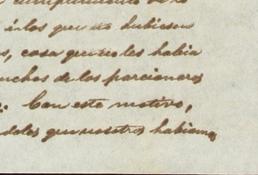 cumplimiento de lo
á los que no hubiesen
s, cosa que no les habia
uchos de los parcioneros
: Con este motivo,
doles que nosotros habiamos